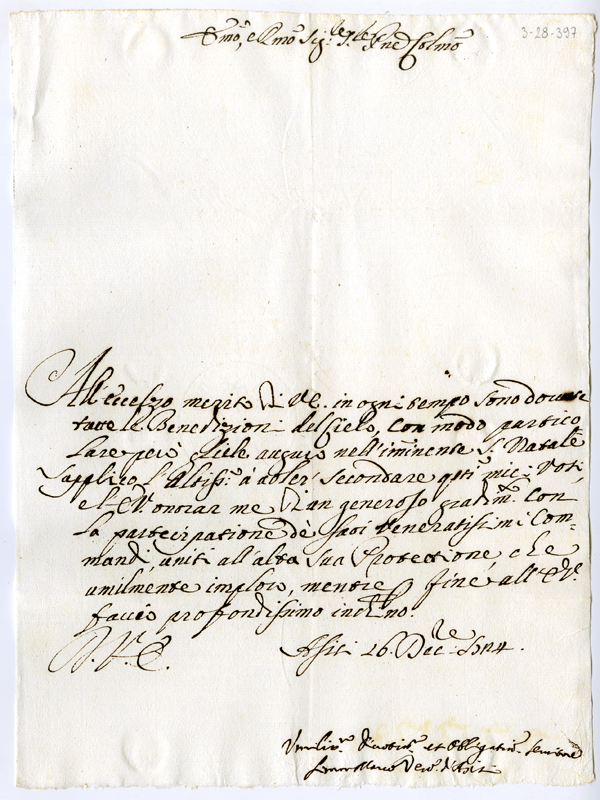 3-28-397
Em̃o, e Rmõ Sig.re Sig.re Pne Colmõ
All'eccelso merito di V.E. in ogni tempo sono dovute
tutte le Benedizioni del Cielo, con modo partico
lare però gliele auguro nell'iminente S. Natale
Supplico l'Altiss.o à voler secondare qsti miei voti,
e l'E.V. onorar me d'un generoso gradim.to con
la partecipatione de suoi Veneratissimi Com-
mandi, uniti all'alta sua Protettione, che
umilmente imploro, mentre p fine all'E.V.
faccio profondissimo inchino.
D. V. E.
Asisi 16. Dec.re
Umiliss.o Devotiss.o et Obligatiss.o Servitore
Marco Vesc.o d'Asisi